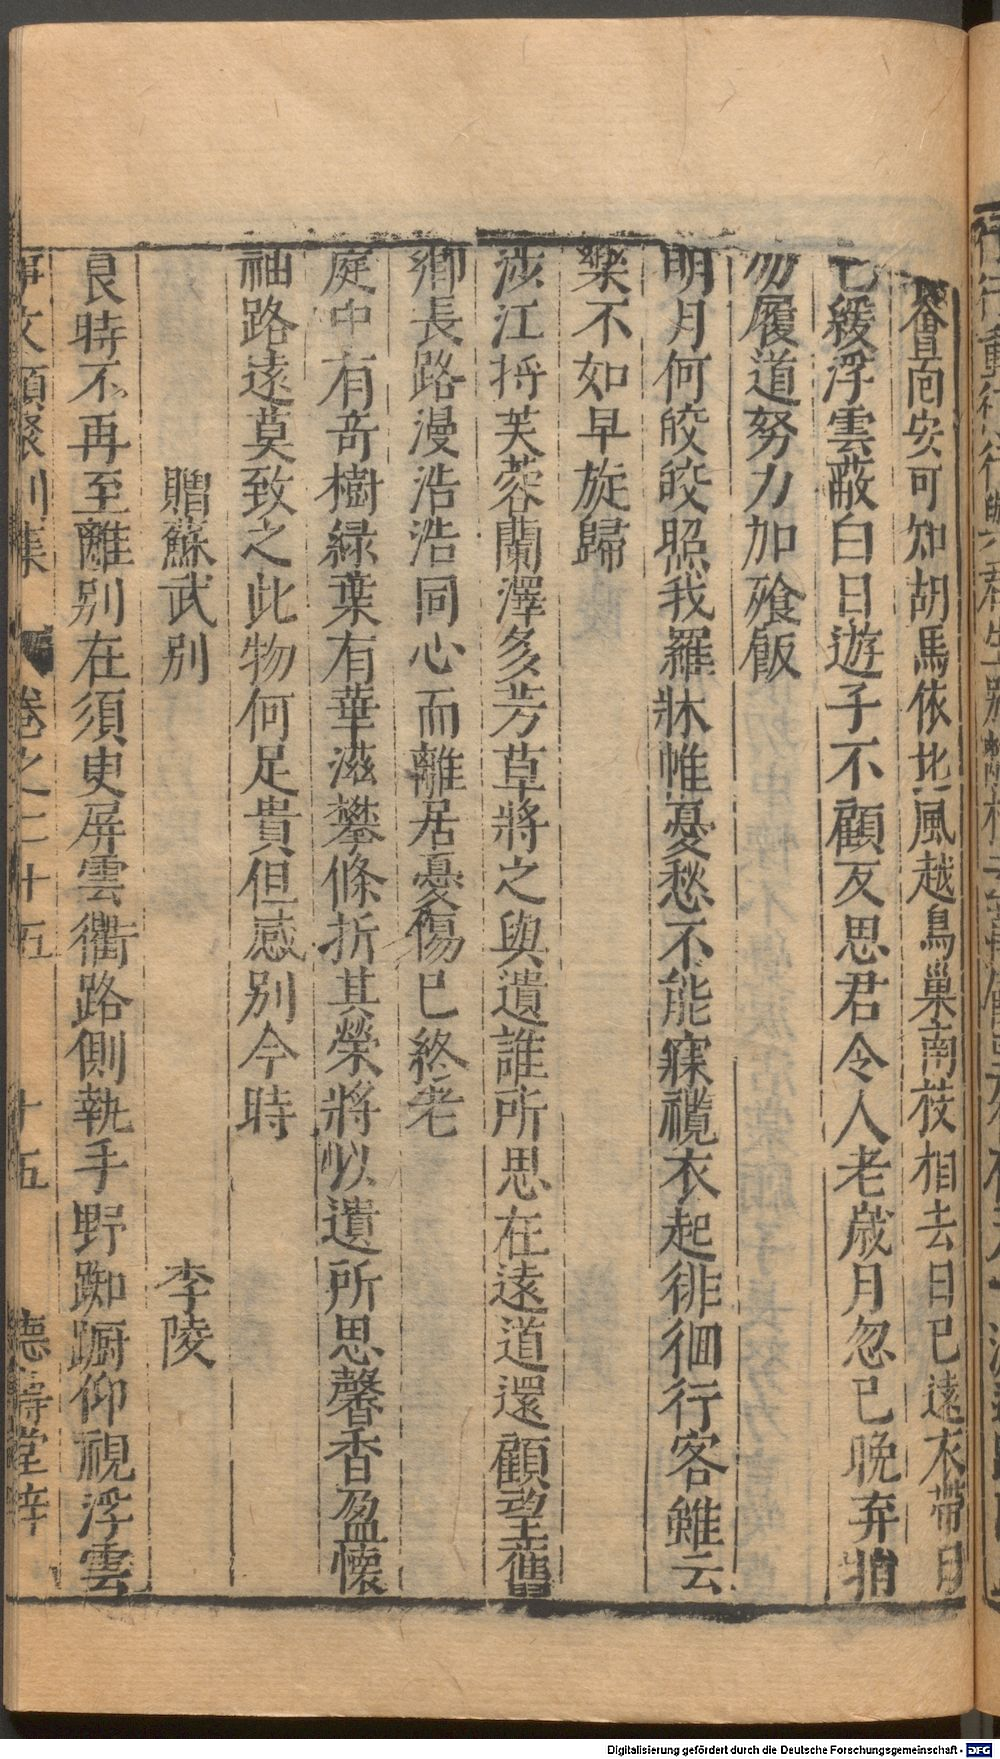 會面安可知胡馬依北風越鳥巢南枝相去日已遠衣帶日
已緩浮雲蔽白日遊子不顧反思君令人老歲月忽已晚弃捐
勿履道努力加飱飯
明月何皎皎照我羅牀帷憂愁不能寐攬衣起徘徊行客雖云
樂不如早旋歸
涉江捋芙蓉蘭澤多芳草將之與遺誰所思在遠道還顧望舊
鄉長路漫浩浩同心而離居憂傷已終老
庭中有奇樹緑葉有華滋攀條折其榮將以遺所思馨香盈懷
袖路遠莫致之此物何足貴但感别今時
贈蘇武别 李陵
良時不再至離别在須臾屏雲衢路側執手野踟蹰仰視浮雲
事文類聚别集 卷之二十五 十五 德壽堂梓
Digitalisierung gefördert durch die Deutsche Forschungsgemeinschaft - DFG